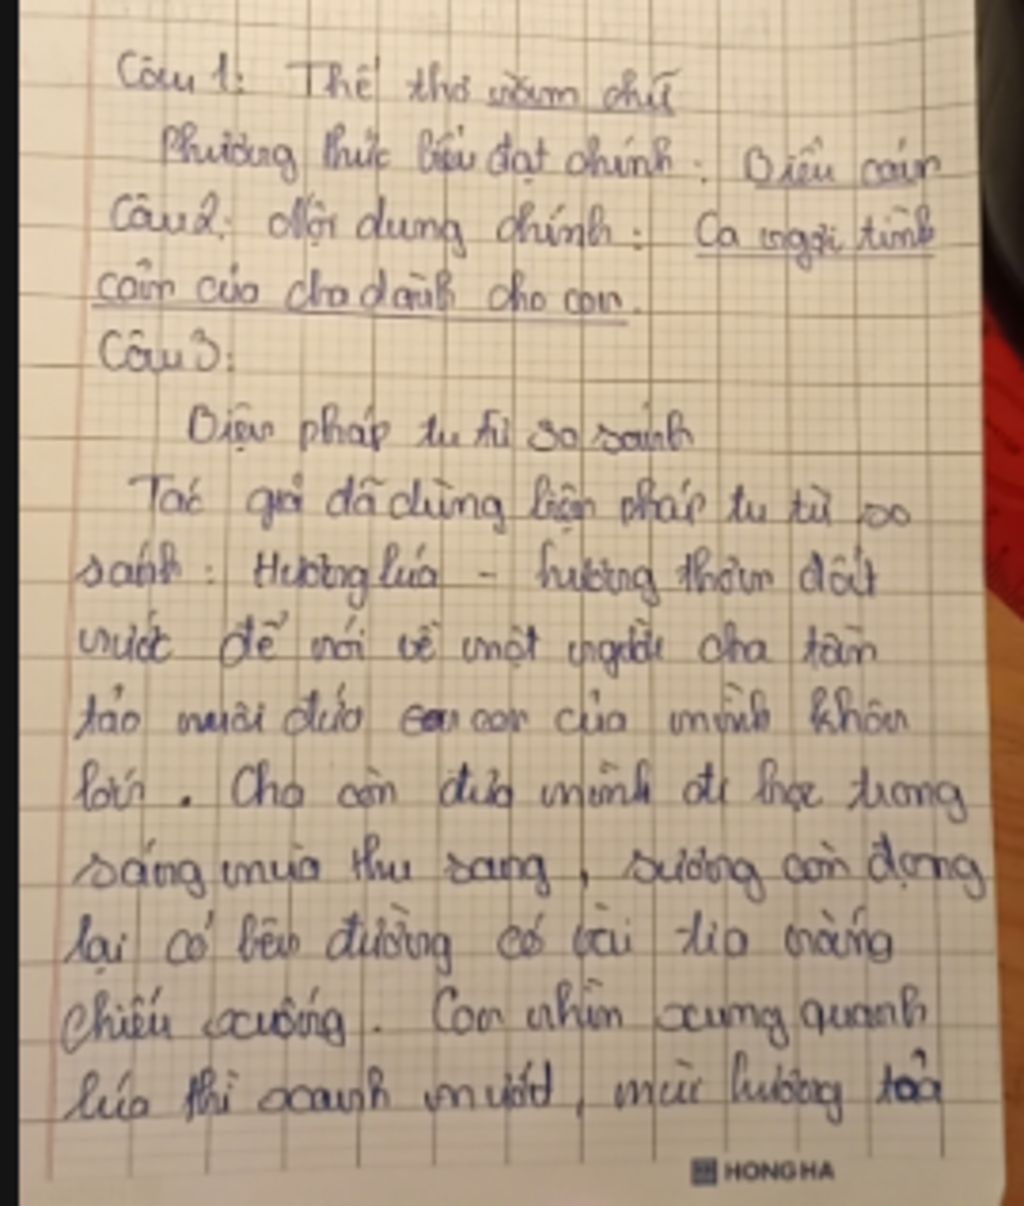 Câu 1: Thể thơ năm chữ
Phương thức biểu đạt chính: Biểu cảm
Câu 2: Nội dung chính: Ca ngợi tình
cảm của cha dành cho con.
Câu 3:
Biện pháp tu từ so sánh
Tác giả đã dùng biện pháp tu từ so
sánh: Hương lúa - hương thơm đất
nước để nói về một người cha tần
tảo nuôi đứa con của mình khôn
lớn. Cha còn đưa mình đi học trong
sáng mùa thu sang, sương còn đọng
lại cỏ bên đường có vài tia nắng
chiếu xuống. Con nhìn xung quanh
lúa thì xanh mướt, mùi hương toả
HONG HA